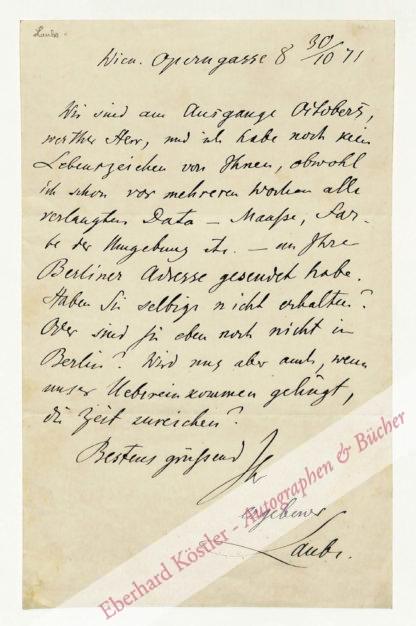 Laube
Wien. Operngasse 8 30/10 71
Wir sind am Ausgange Octobers,
werther Herr, und ich habe noch kein
Lebenszeichen von Ihnen, obwohl
ich schon vor mehreren Wochen alle
verlangten Data – Maaße, Far-
be der Umgebung etc. – an Ihre
Berliner Adresse gesendet habe.
Haben Sie selbige nicht erhalten?
Oder sind Sie eben noch nicht in
Berlin? Wird nun aber auch, wenn
unser Uebereinkommen gelingt,
die Zeit zureichen?
Bestens grüßend Ihr
ergebener
Laube.
Eberhard Köstler - Autographen & Bücher